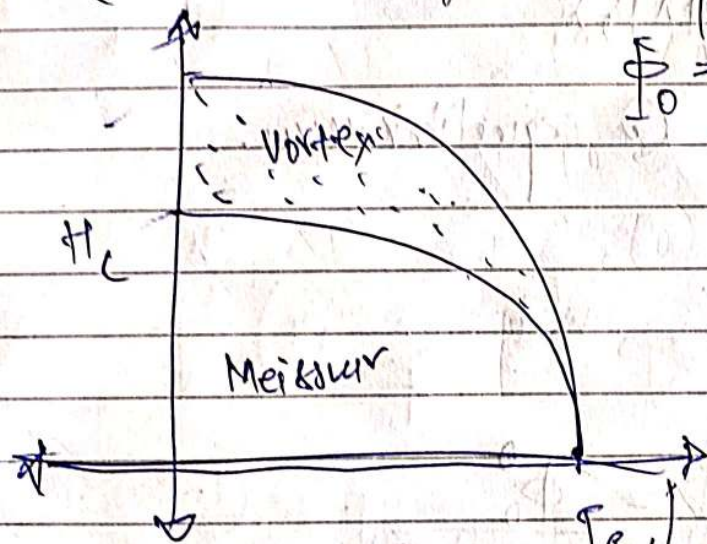 Φ0 =
Vortex
Hc
Meissner